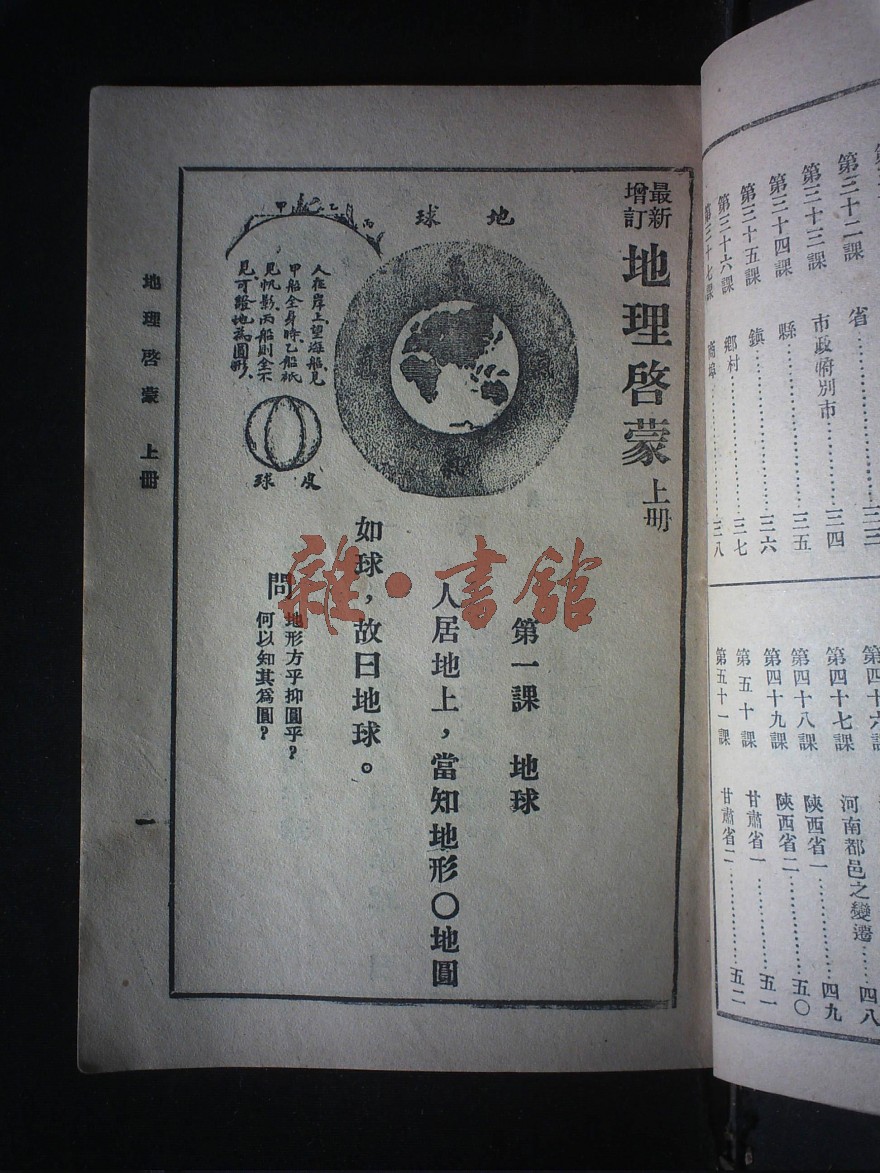 第三十二課 省……三三
第三十三課 市政府別市……三四
第三十四課 縣……三五
第三十五課 鎮……三六
第三十六課 鄉村……三七
第三十七課 商埠……三八
第四十六課
第四十七課 河南都邑之變遷……四八
第四十八課 陝西省一……四九
第四十九課 陝西省二……五〇
第五十課 甘肅省一……五一
第五十一課 甘肅省二……五二
最新增訂 地理啓蒙 上册
地球
甲
乙
丙
人在岸上望海船見
甲船全身時乙船祇
見帆影丙船則全不
見可證地為圓形
皮球
第一課 地球
人居地上,當知地形○地圓
如球,故曰地球。
問 地形方乎抑圓乎?
何以知其爲圓?
地理啓蒙 上冊
一
雜·書館